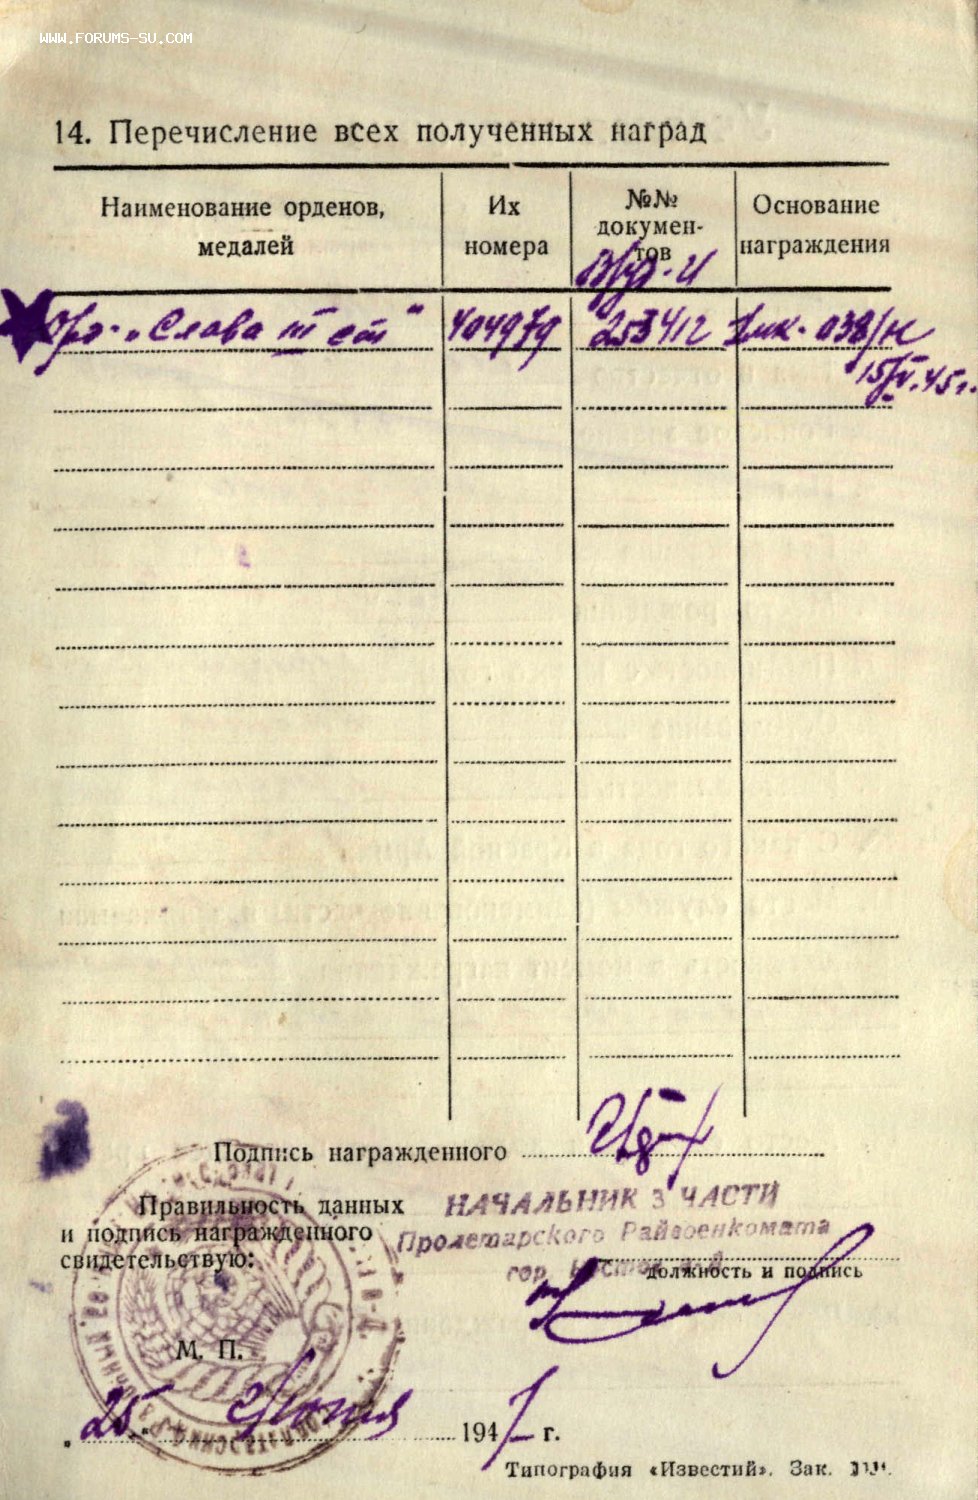 WWW.FORUMS-SU.COM
14. Перечисление всех полученных наград
Наименование орденов, медалей
Их номера
№№ документов
Основание награждения
Орд. „Слава III ст"
404979
253412
038/н
15/V.45г.
Подпись награжденного
Правильность данных
и подпись награжденного
свидетельствую:
НАЧАЛЬНИК 3 ЧАСТИ
Пролетарского Райвоенкомата
гор.
должность и подпись
М. П.
„25" Июня 1947 г.
Типография «Известий». Зак.